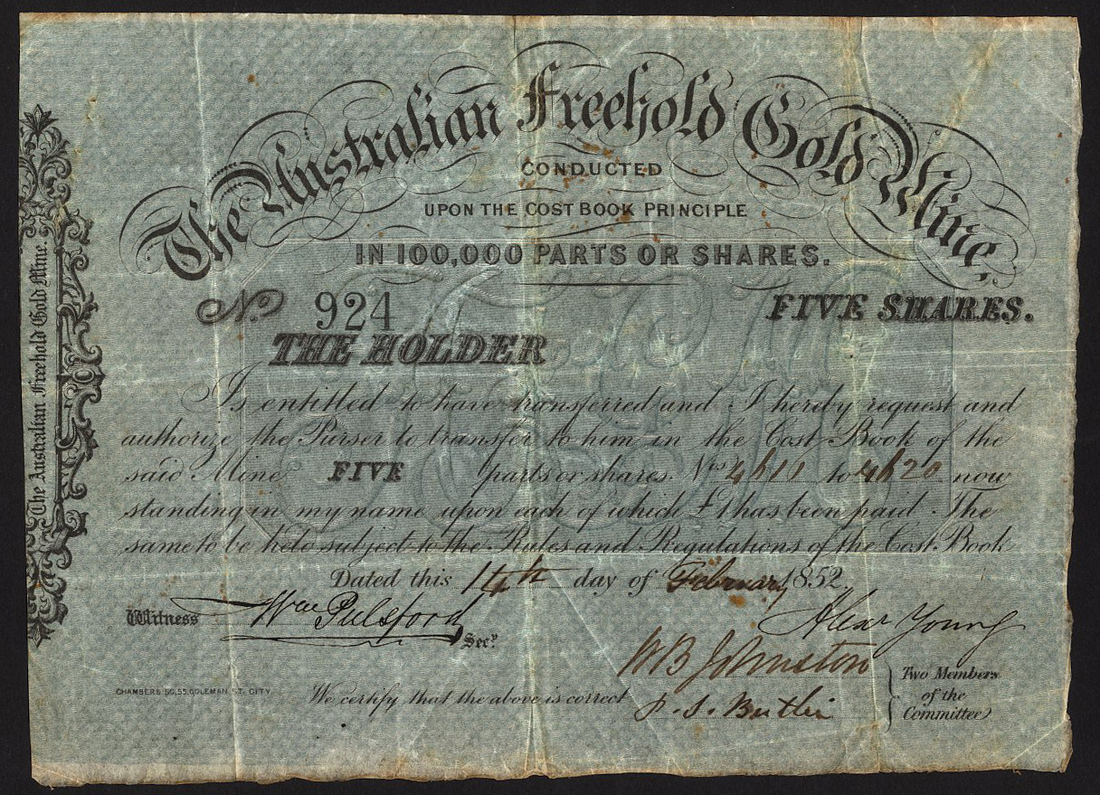 The Australian Freehold Gold Mine,
CONDUCTED
UPON THE COST BOOK PRINCIPLE
IN 100,000 PARTS OR SHARES.
No. 924 FIVE SHARES.
THE HOLDER
Is entitled to have transferred and I hereby request and
authorize the Purser to transfer to him in the Cost Book of the
said Mine FIVE parts or shares Nos. to now
standing in my name upon each of which £1 has been paid. The
same to be held subject to the Rules and Regulations of the Cost Book
Dated this 14th day of February 1852
Witness Wm Pulsford Secy. Alexr Young
W B Johnston
We certify that the above is correct P. S. Butler
Two Members
of the
Committee
CHAMBERS 50, 55, COLEMAN ST. CITY.
The Australian Freehold Gold Mine.